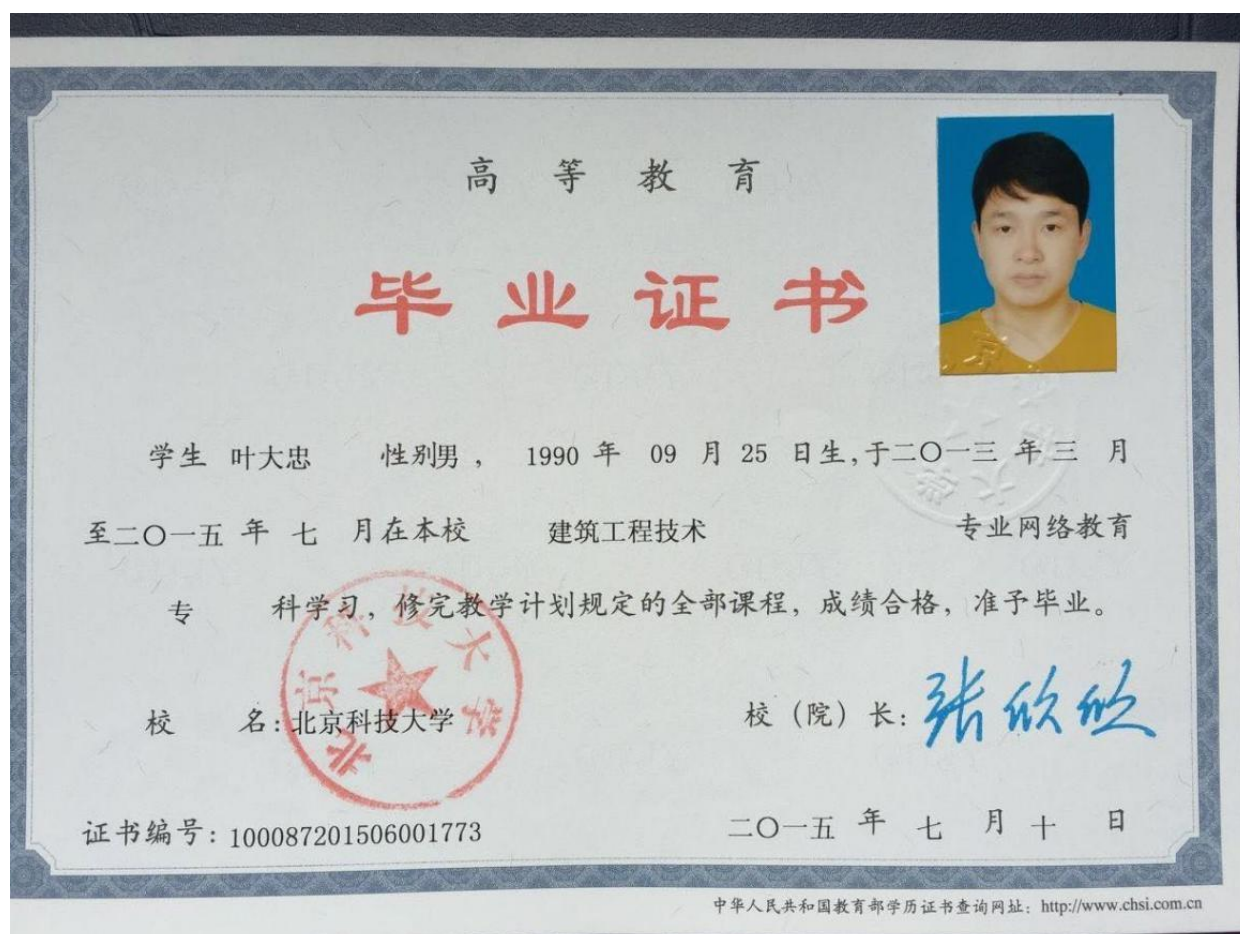 高等教育
毕业证书
学生 叶大忠 性别男， 1990 年 09 月 25 日生,于二〇一三 年 三 月
至二〇一五 年 七 月在本校 建筑工程技术 专业网络教育
专 科学习，修完教学计划规定的全部课程，成绩合格，准予毕业。
校 名：北京科技大学
校（院）长：张欣欣
北京科技大学
证书编号：100087201506001773
二〇一五 年 七 月 十 日
中华人民共和国教育部学历证书查询网址：http://www.chsi.com.cn